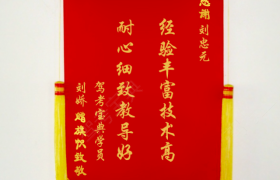 感谢刘忠元
经验丰富技术高
耐心细致教导好
驾考宝典学员
刘娇 赠旗帜致敬